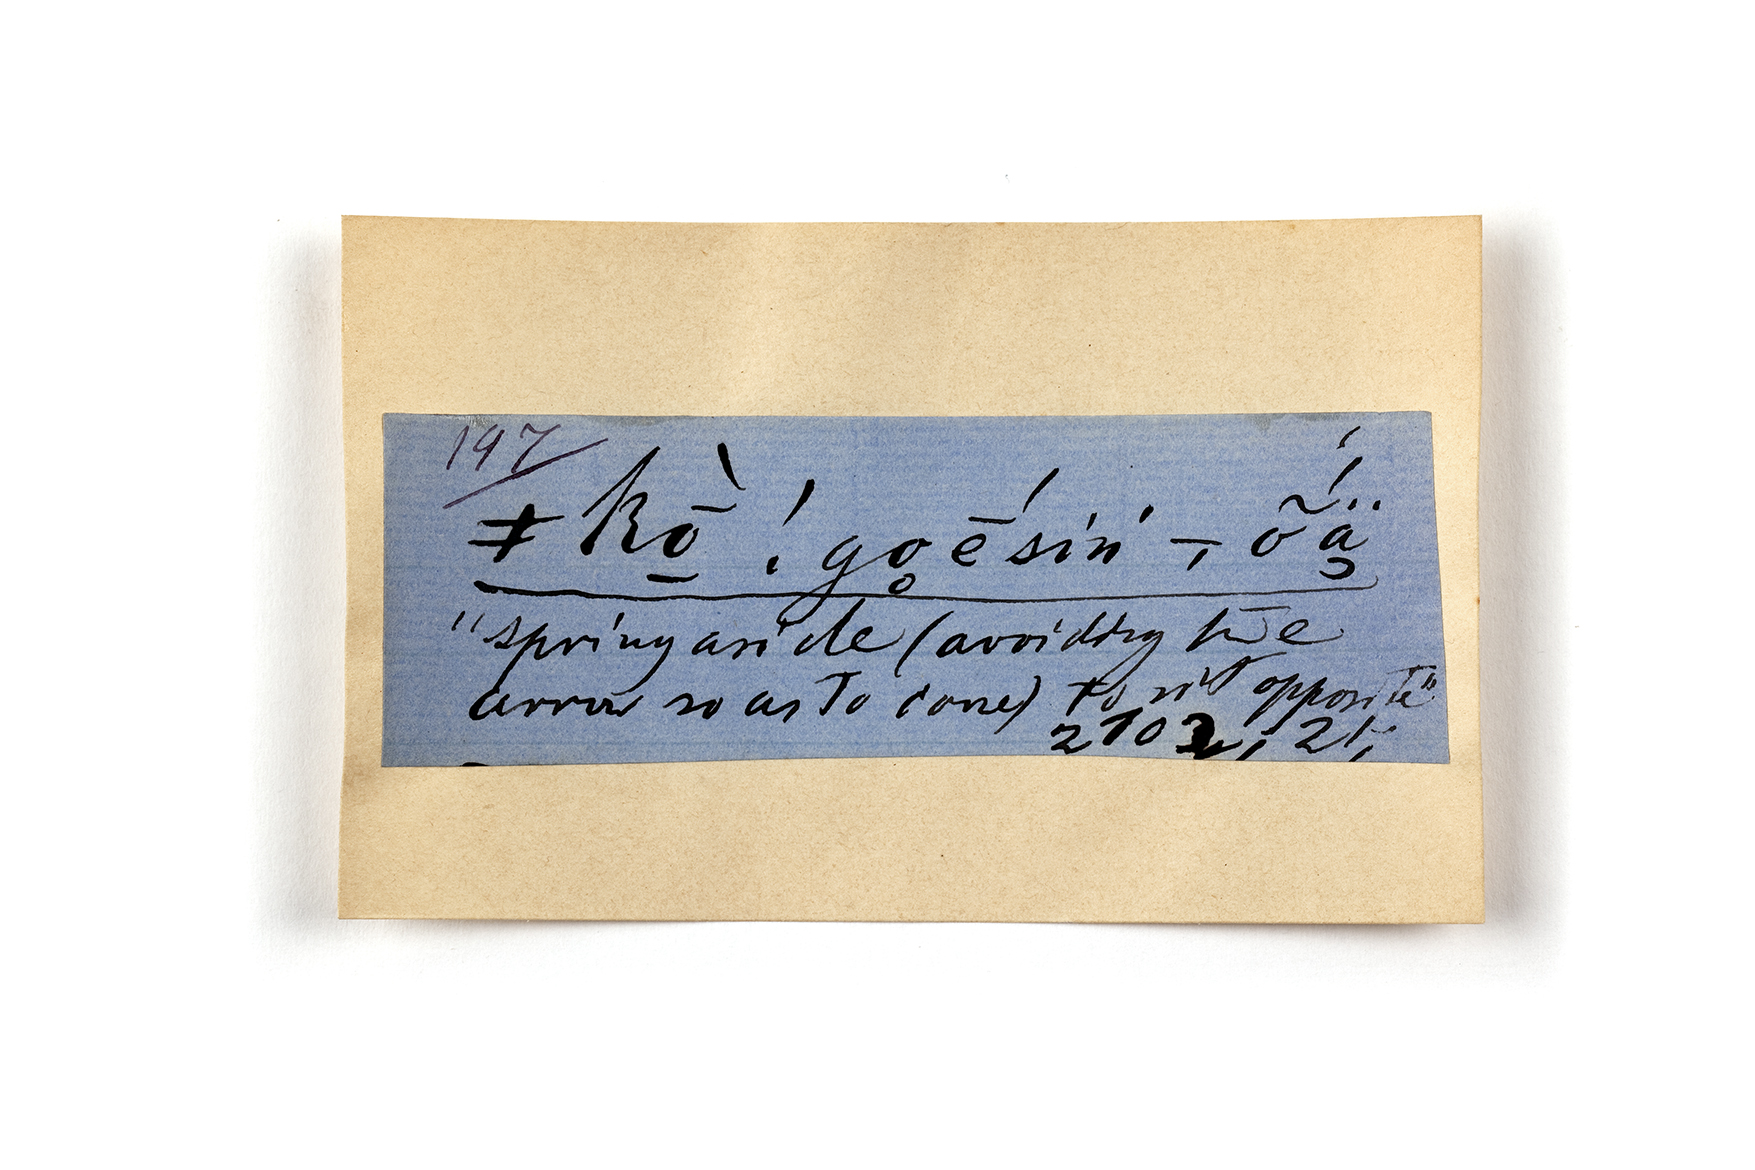 197
ǂkṑ̠ ! gọ́ḗsin - õä́
"spring aside (avoiding the
arrow so as to
to sit opposite"
2103, 21,